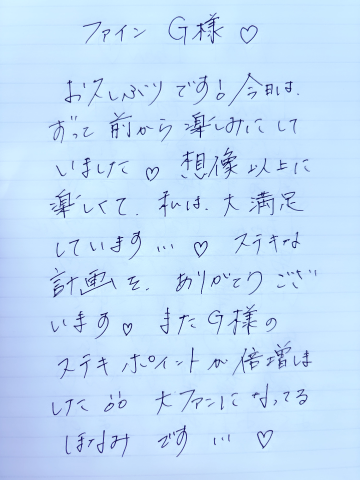 ファイン G様 ♡
お久しぶりです! 今日は、
ずって前から楽しみにして
いました♡ 想像以上に
楽しくて、私は、大満足
しています… ♡ ステキな
計画を、ありがとうござ
います♡ またG様の
ステキポイントが倍増しま
した 大ファンになってる
ほなみです… ♡